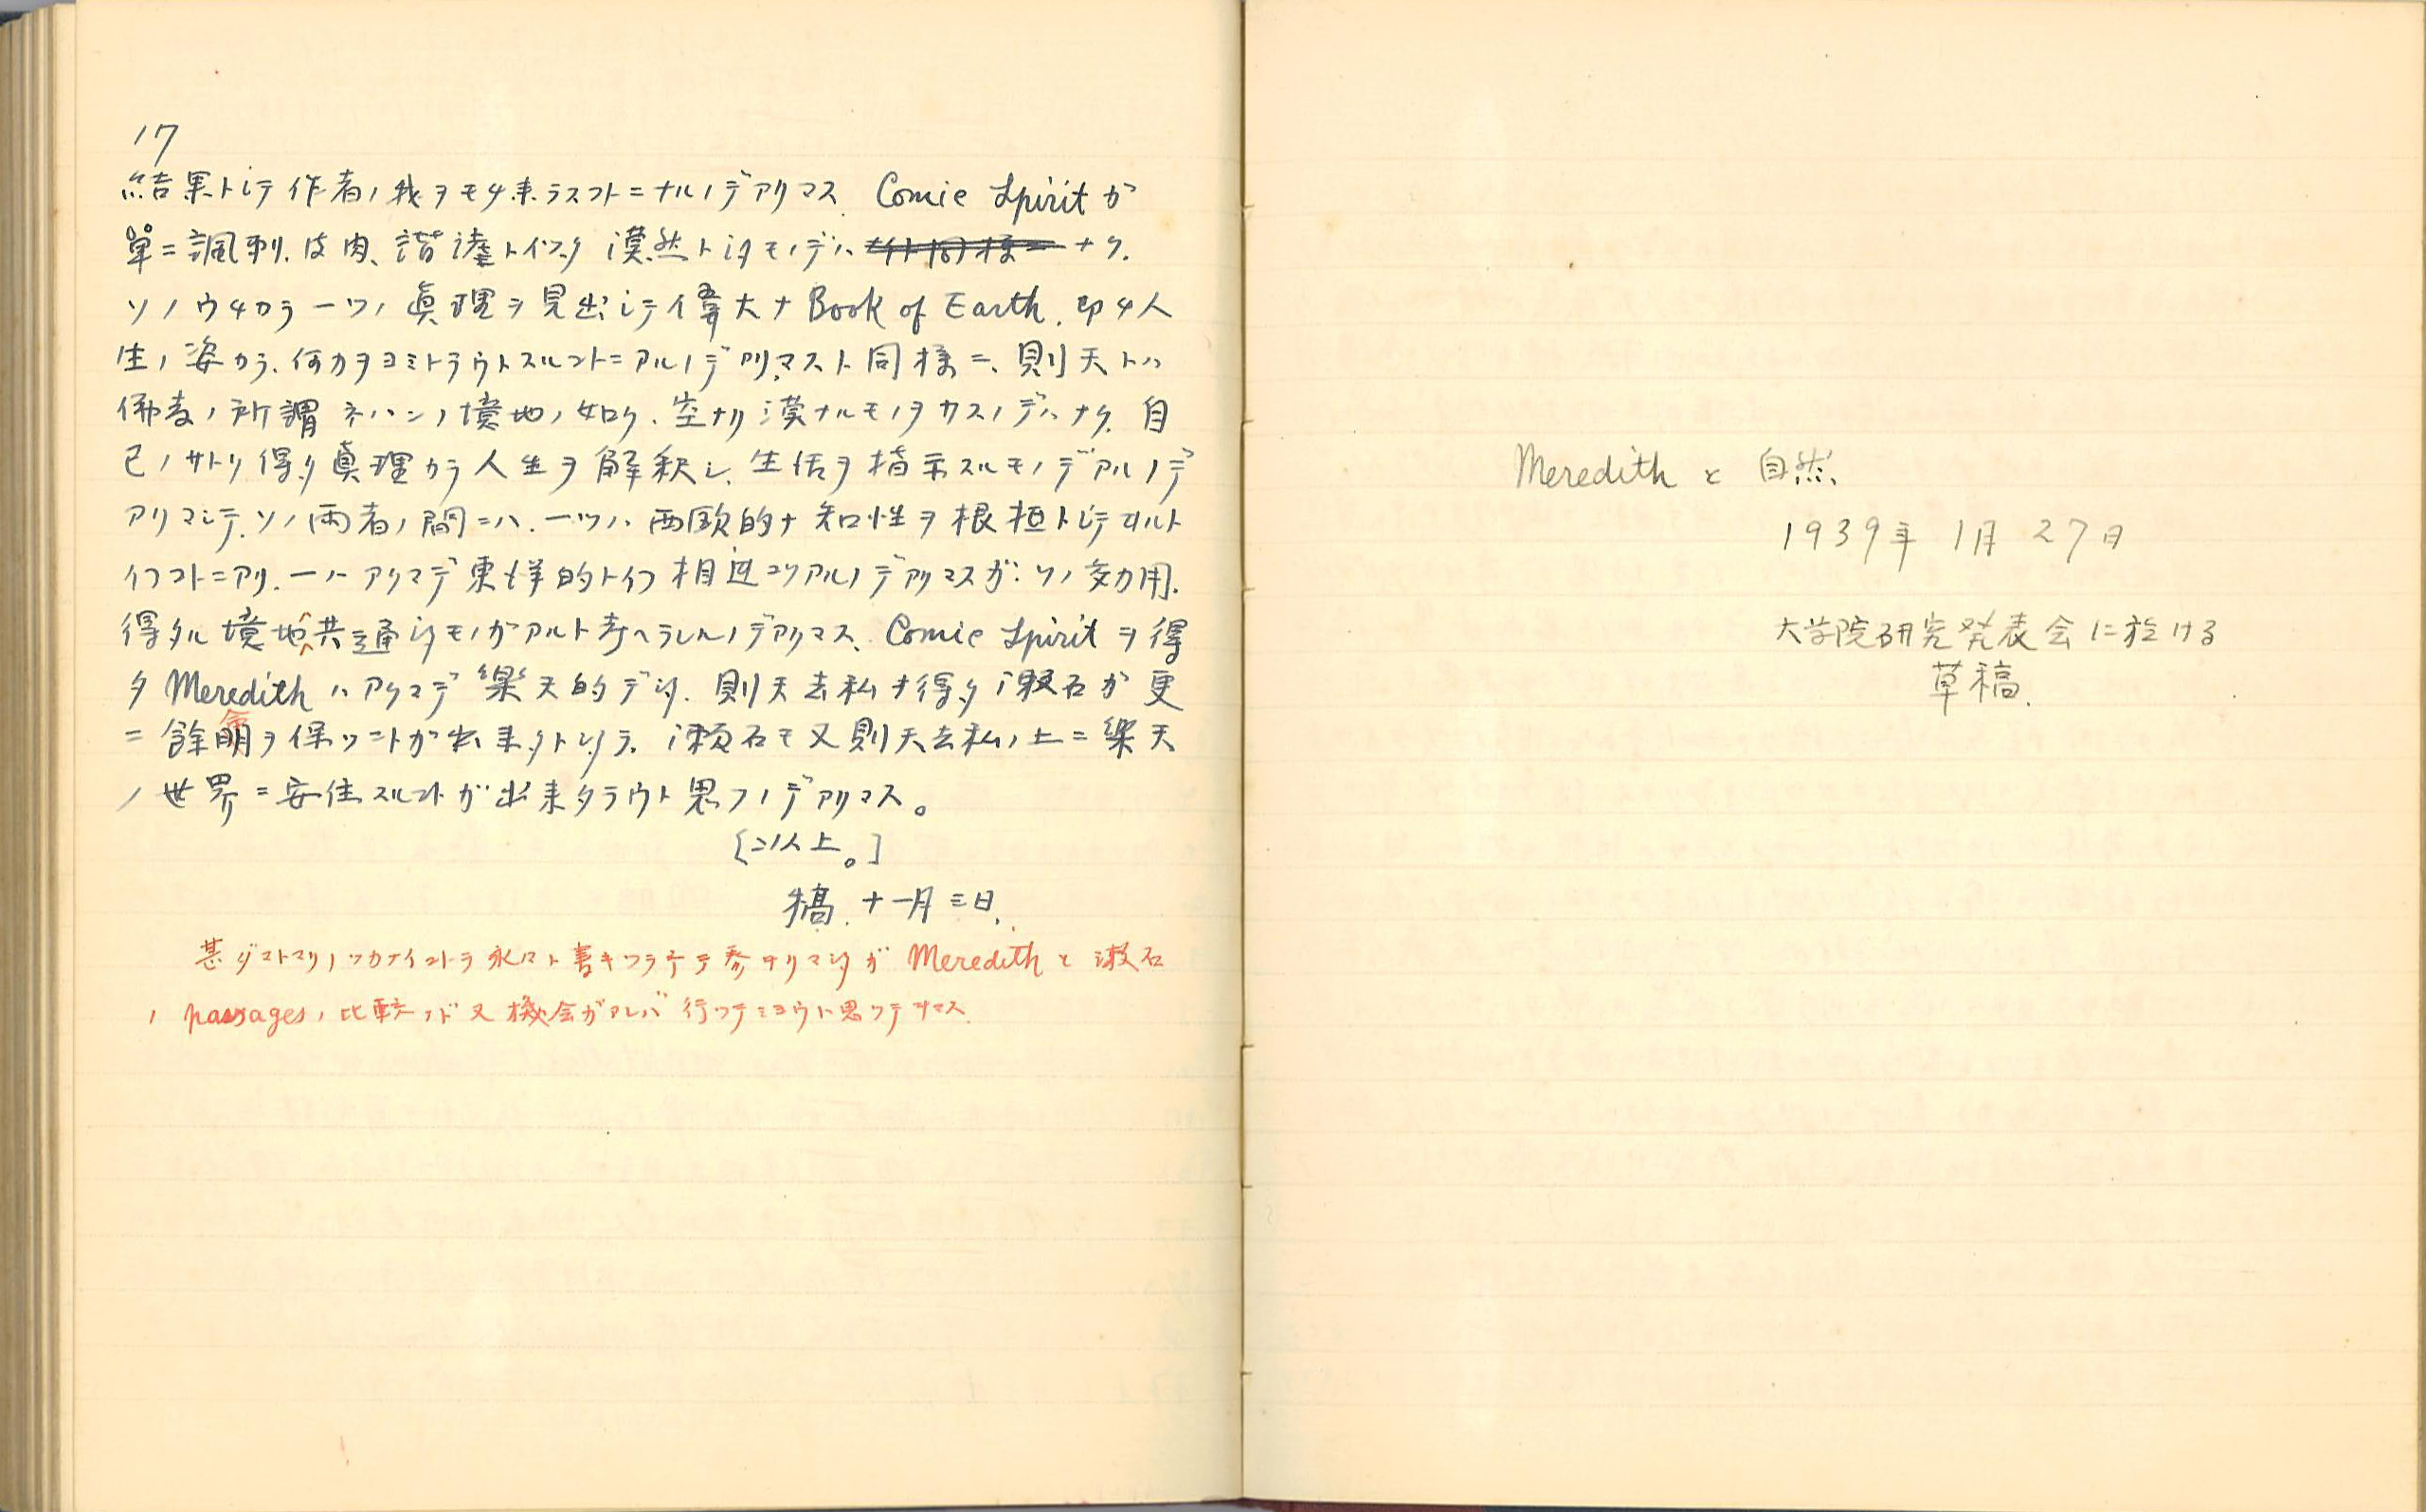 17
結果トシテ作者ノ我ヲモタ来ラスコトニナルノデアリマス、Comic Spiritガ
単ニ諷刺、皮肉、諧謔トイツタ漠然トシタモノデハ ナク、
ソノウチカラ一ツノ眞理ヲ見出シテ偉大ナ Book of Earth、即チ人
生ノ姿カラ、何カヲヨミトラウトスルコトニアルノデアリマスト同様ニ、則天トハ
佛教ノ所謂ネハンノ境地ノ如ク、空ナリ漠ナルモノヲサスノデハナク、自
己ノサトリ得タ眞理カラ人生ヲ解釈シ、生活ヲ指示スルモノデアルノデ
アリマシテ、ソノ両者ノ間ニハ、一ツハ西欧的ナ知性ヲ根柢トシテヰルト
イフコトニアリ、一ハアクマデ東洋的トイフ相違コソアルノデアリマスガ、ソノ効用、
得タル境地ハ共通シタモノガアルト考ヘラレルノデアリマス、Comic Spiritヲ得
タ Meredithハアクマデ樂天的デシタ、則天去私ヲ得タ漱石ガ更
ニ餘命ヲ保ツコトガ出来タトシタラ、漱石モ又則天去私ノ上ニ樂天
ノ世界ニ安住スルコトガ出来タラウト思フノデアリマス。
[以上。]
稿、十一月三日、
甚ダマトマリノツカナイコトヲ永々ト書キツラネテ参ヰリマシタガ Meredithと漱石
ノ passagesノ比較ナド又機会ガアレバ行ツテミヨウト思ツテヰマス
Meredith と 自然
1939年 1月 27日
大学院研究発表会に於ける
草稿.